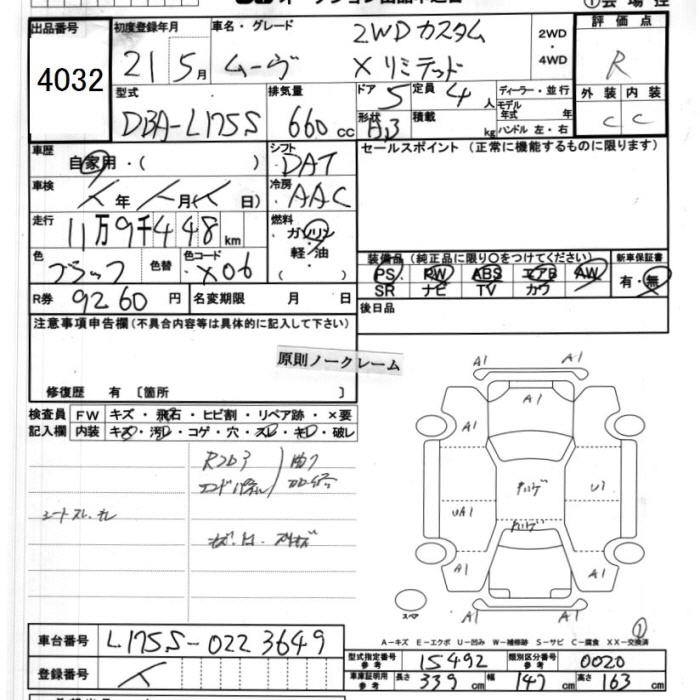 ①会場控
出品番号
4032
初度登録年月
21 5月
車名・グレード
ムーヴ
2WD カスタム
X リミテッド
2WD
・
4WD
評価点
R
外装 内装
C C
型式
DBA-L175S
排気量
660 cc
ドア 5
定員 4 人
形状
積載 kg
ディーラー・並行
モデル年式 年
ハンドル 左・右
車歴
自家用・( )
シフト
DAT
セールスポイント (正常に機能するものに限ります)
車検
年 月( 日)
冷房
AAC
走行
11万9千448km
燃料
ガソリン
軽・油
( )
色
ブラック
色替
色コード
X06
装備品(純正品に限り〇をつけてください)
PS PW ABS エアB AW
SR ナビ TV カワ
新車保証書
有・無
R券 9260円
名変期限 月 日
後日品
注意事項申告欄(不具合内容等は具体的に記入して下さい)
原則ノークレーム
修復歴 有 〔箇所 〕
検査員記入欄
FW キズ・飛石・ヒビ割・リペア跡・×要
内装 キズ・汚レ・コゲ・穴・スレ・キレ・破レ
A1 A1
A1
A1 A1
UA1 U1
A1 A1
A1
スペア
①
A-キズ E-エクボ U-凹み W-補修跡 S-サビ C-腐食 XX-交換済
車台番号
L175S-0223649
登録番号
型式指定番号 参考 15492
類別区分番号 参考 0020
車庫証明用 参考 長さ 339cm 幅 147cm 高さ 163cm